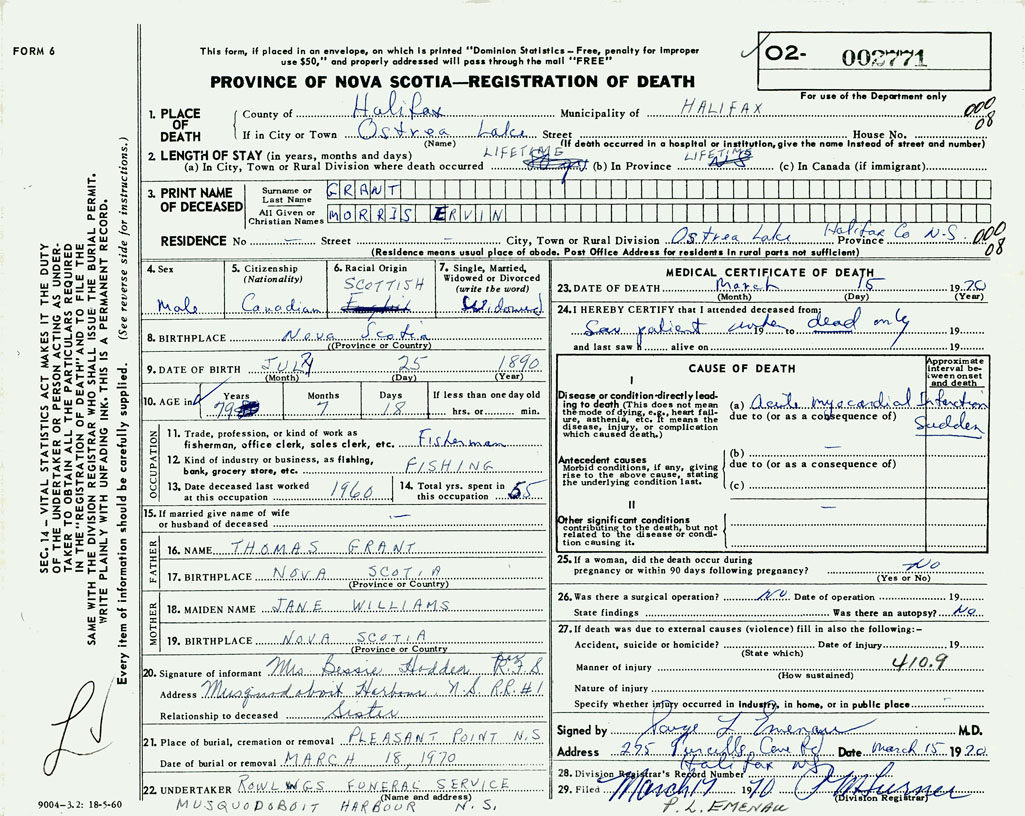 FORM 6
This form, if placed in an envelope, on which is printed "Dominion Statistics – Free, penalty for improper
use $50," and properly addressed will pass through the mail "FREE"
PROVINCE OF NOVA SCOTIA—REGISTRATION OF DEATH
O2- 002771
For use of the Department only
1. PLACE OF DEATH
County of Halifax Municipality of HALIFAX
If in City or Town Ostrea Lake Street House No.
(Name) (If death occurred in a hospital or institution, give the name instead of street and number)
000
08
2. LENGTH OF STAY (in years, months and days)
(a) In City, Town or Rural Division where death occurred LIFETIME (b) In Province LIFETIME (c) In Canada (if immigrant)
3. PRINT NAME OF DECEASED
Surname or Last Name GRANT
All Given or Christian Names MORRIS ERVIN
RESIDENCE No — Street — City, Town or Rural Division Ostrea Lake Province Halifax Co N.S.
(Residence means usual place of abode. Post Office Address for residents in rural parts not sufficient)
000
08
4. Sex
Male
5. Citizenship
(Nationality)
Canadian
6. Racial Origin
SCOTTISH
7. Single, Married,
Widowed or Divorced
(write the word)
Widowed
8. BIRTHPLACE Nova Scotia
(Province or Country)
9. DATE OF BIRTH JULY 25 1890
(Month) (Day) (Year)
10. AGE in
Years Months Days If less than one day old
79 7 18 hrs. or min.
OCCUPATION
11. Trade, profession, or kind of work as
fisherman, office clerk, sales clerk, etc. Fisherman
12. Kind of industry or business, as fishing,
bank, grocery store, etc. FISHING
13. Date deceased last worked
at this occupation 1960
14. Total yrs. spent in
this occupation 55
15. If married give name of wife
or husband of deceased —
FATHER
16. NAME THOMAS GRANT
17. BIRTHPLACE NOVA SCOTIA
(Province or Country)
MOTHER
18. MAIDEN NAME JANE WILLIAMS
19. BIRTHPLACE NOVA SCOTIA
(Province or Country
20. Signature of informant Mrs. Bessie Hodder
Address Musquodoboit Harbour N.S. RR#1
Relationship to deceased Sister
21. Place of burial, cremation or removal PLEASANT POINT N.S
Date of burial or removal MARCH 18, 1970
22. UNDERTAKER ROWLINGS FUNERAL SERVICE
(Name and address)
MUSQUODOBOIT HARBOUR N.S.
9004-3.2: 18-5-60
MEDICAL CERTIFICATE OF DEATH
23. DATE OF DEATH March 15 1970
(Month) (Day) (Year)
24. I HEREBY CERTIFY that I attended deceased from:
Saw patient when 19 to dead only 19
and last saw h alive on 19
CAUSE OF DEATH
Approximate interval between onset and death
I
Disease or condition directly leading to death (This does not mean the mode of dying, e.g., heart failure, asthenia, etc. It means the disease, injury, or complication which caused death.)
(a) Acute myocardial Infarction
due to (or as a consequence of)
Sudden
Antecedent causes
Morbid conditions, if any, giving rise to the above cause, stating the underlying condition last.
(b) —
due to (or as a consequence of)
(c)
II
Other significant conditions
contributing to the death, but not related to the disease or condition causing it.
—
25. If a woman, did the death occur during
pregnancy or within 90 days following pregnancy? No
(Yes or No)
26. Was there a surgical operation? No Date of operation 19
State findings Was there an autopsy? No
27. If death was due to external causes (violence) fill in also the following:-
Accident, suicide or homicide? Date of injury 19
(State which)
Manner of injury 410.9
(How sustained)
Nature of injury
Specify whether injury occurred in industry, in home, or in public place
Signed by L Emenau M.D.
Address 295 Purcells Cove Rd Date March 15 1970
Halifax NS
28. Division Registrar's Record Number
29. Filed March 17 1970
(Division Registrar)
P.L. EMENAU
SEC. 14 – VITAL STATISTICS ACT MAKES IT THE DUTY
OF THE UNDERTAKER OR PERSON ACTING AS UNDERTAKER
TO OBTAIN ALL THE PARTICULARS REQUIRED
IN THE "REGISTRATION OF DEATH" AND TO FILE THE
SAME WITH THE DIVISION REGISTRAR WHO SHALL ISSUE THE BURIAL PERMIT.
WRITE PLAINLY WITH UNFADING INK. THIS IS A PERMANENT RECORD.
Every item of information should be carefully supplied. (See reverse side for instructions.)